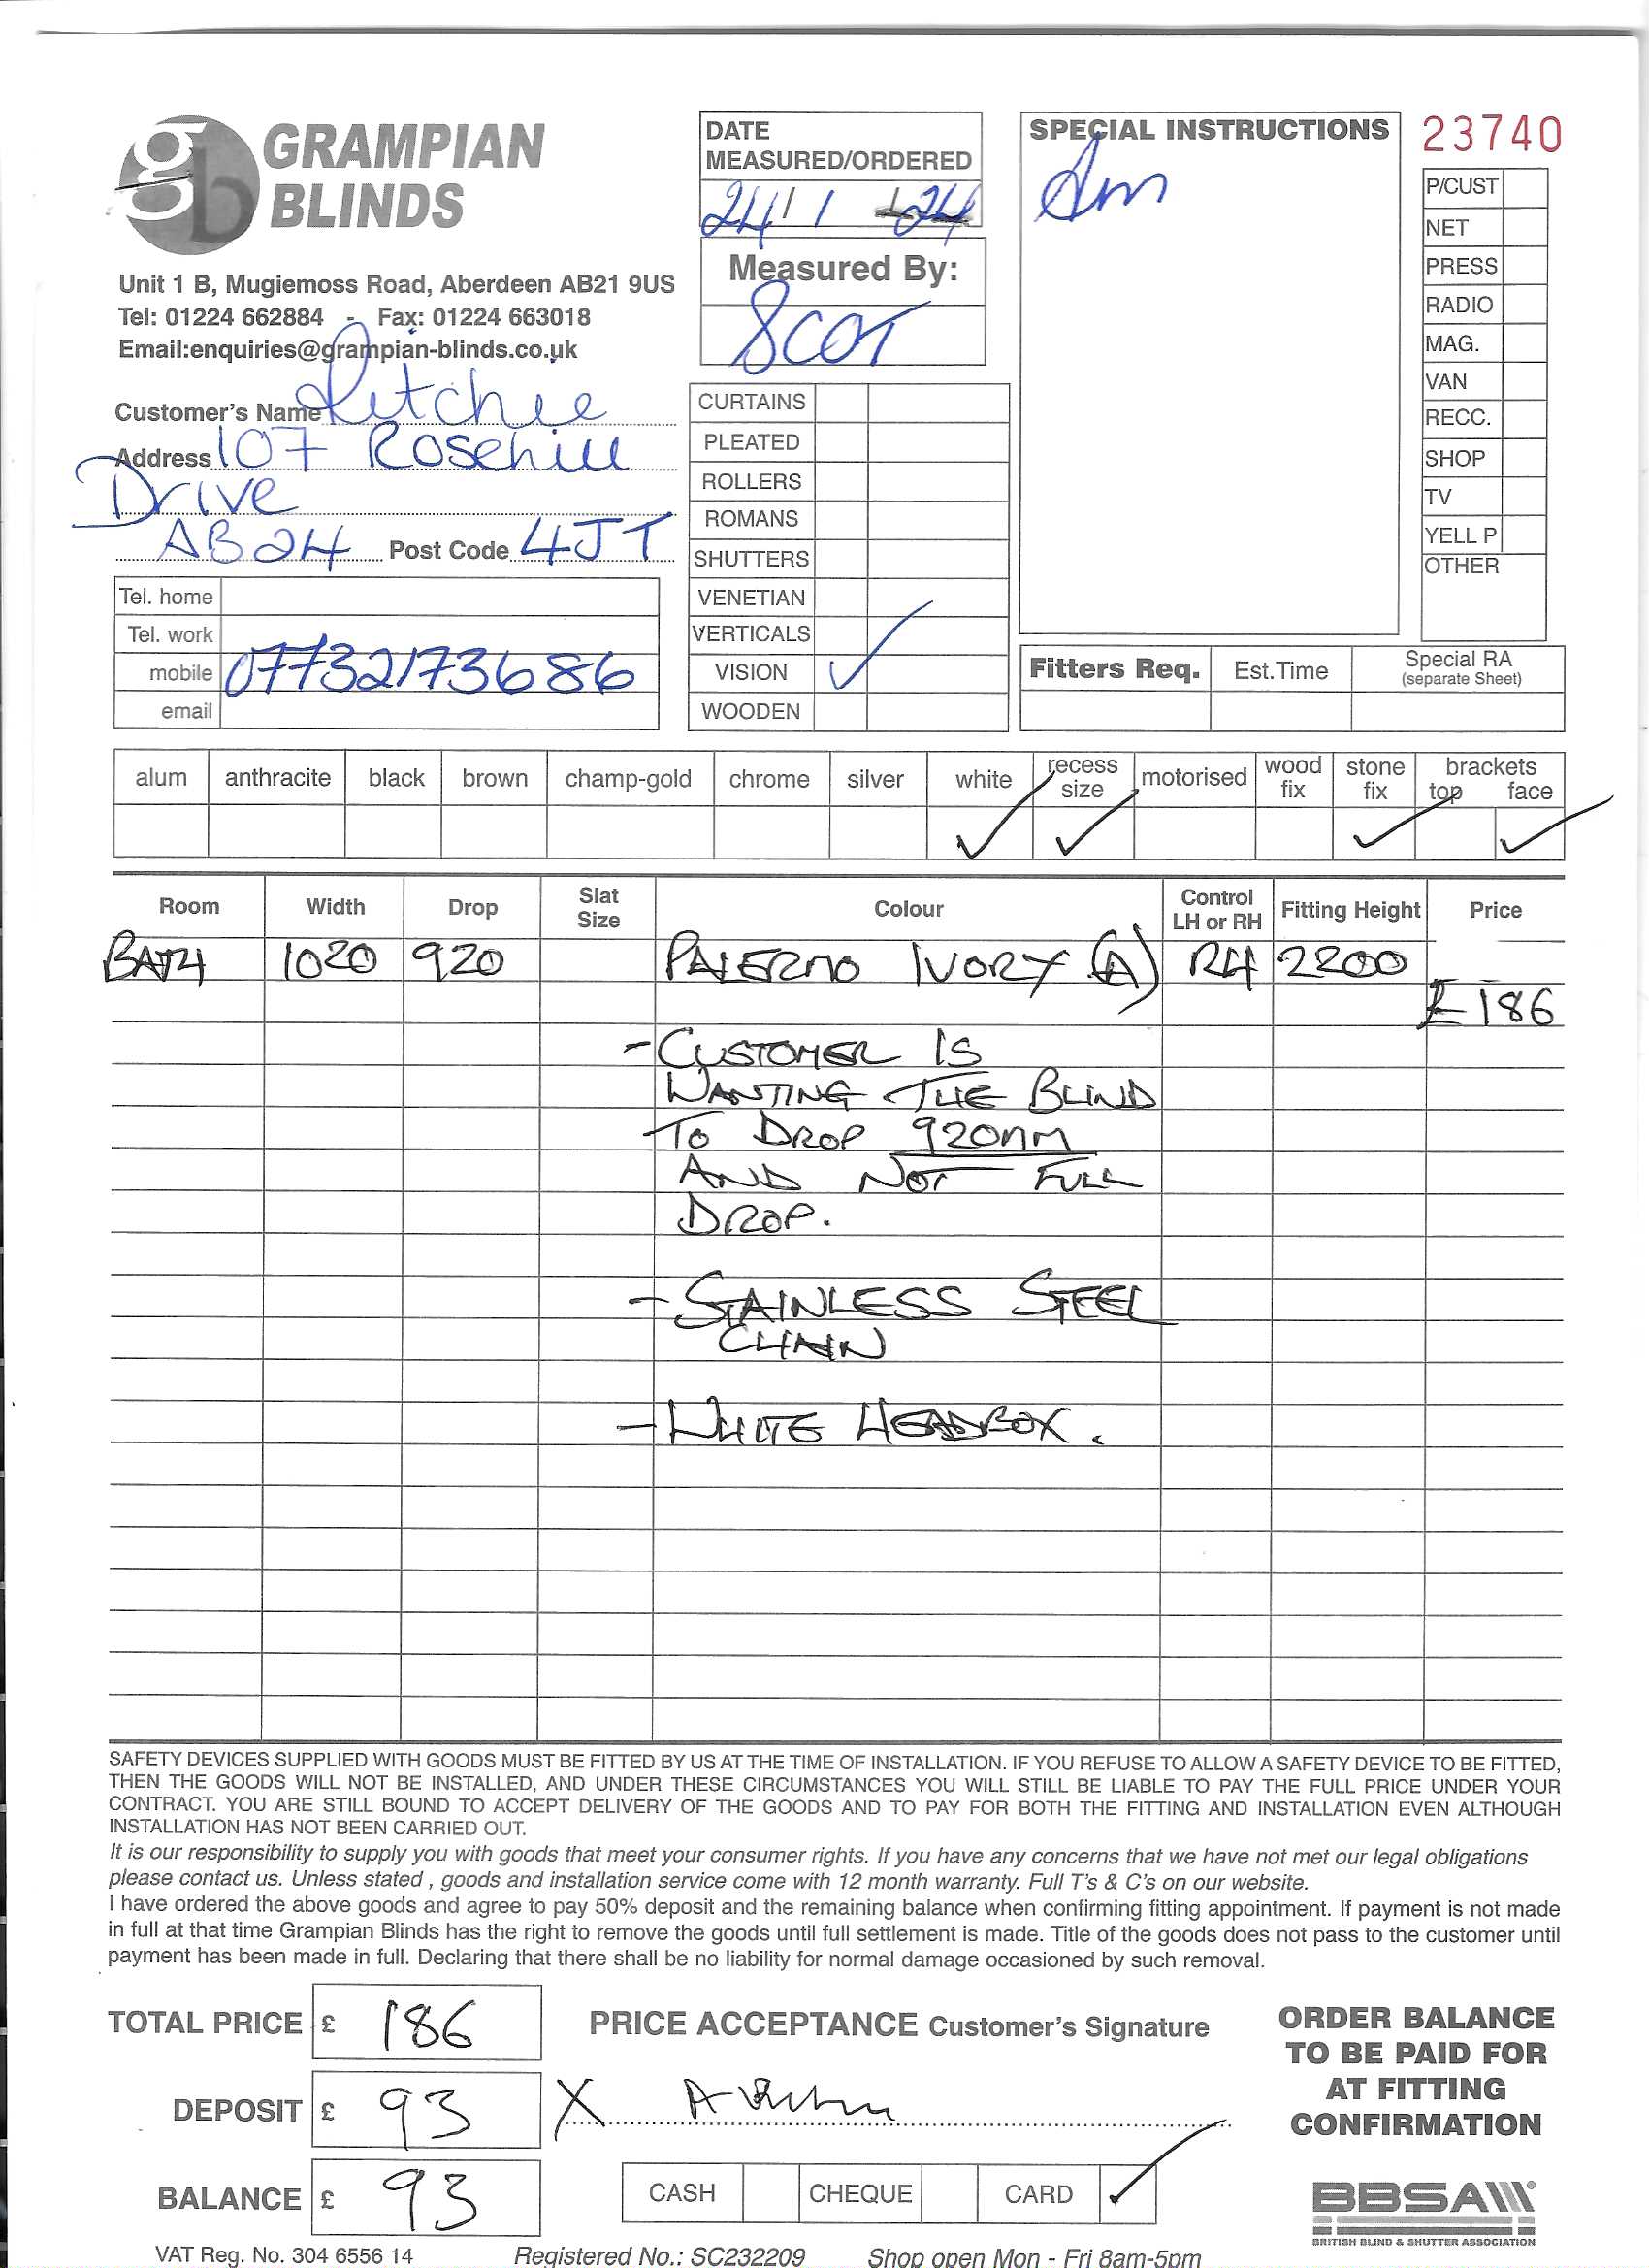 gb GRAMPIAN BLINDS
Unit 1 B, Mugiemoss Road, Aberdeen AB21 9US
Tel: 01224 662884 - Fax: 01224 663018
Email:enquiries@grampian-blinds.co.uk
Customer's Name Ritchie
Address 107 Rosehill
Drive
AB24 Post Code 4JT
Tel. home
Tel. work
mobile 07732173686
email
DATE
MEASURED/ORDERED
24/1 24
Measured By:
SCOT
CURTAINS
PLEATED
ROLLERS
ROMANS
SHUTTERS
VENETIAN
VERTICALS
VISION ✓
WOODEN
SPECIAL INSTRUCTIONS
23740
P/CUST
NET
PRESS
RADIO
MAG.
VAN
RECC.
SHOP
TV
YELL P
OTHER
Fitters Req. Est.Time Special RA
(separate Sheet)
alum anthracite black brown champ-gold chrome silver white recess size motorised wood fix stone fix brackets top face
✓ ✓ ✓ ✓
Room Width Drop Slat Size Colour Control LH or RH Fitting Height Price
BATH 1020 920 PALERMO IVORY (A) RH 2200
£186
- CUSTOMER IS
WANTING THE BLIND
TO DROP 920MM
AND NOT FULL
DROP.
- STAINLESS STEEL
CHAIN
- WHITE HEADBOX.
SAFETY DEVICES SUPPLIED WITH GOODS MUST BE FITTED BY US AT THE TIME OF INSTALLATION. IF YOU REFUSE TO ALLOW A SAFETY DEVICE TO BE FITTED,
THEN THE GOODS WILL NOT BE INSTALLED, AND UNDER THESE CIRCUMSTANCES YOU WILL STILL BE LIABLE TO PAY THE FULL PRICE UNDER YOUR
CONTRACT. YOU ARE STILL BOUND TO ACCEPT DELIVERY OF THE GOODS AND TO PAY FOR BOTH THE FITTING AND INSTALLATION EVEN ALTHOUGH
INSTALLATION HAS NOT BEEN CARRIED OUT.
It is our responsibility to supply you with goods that meet your consumer rights. If you have any concerns that we have not met our legal obligations
please contact us. Unless stated , goods and installation service come with 12 month warranty. Full T's & C's on our website.
I have ordered the above goods and agree to pay 50% deposit and the remaining balance when confirming fitting appointment. If payment is not made
in full at that time Grampian Blinds has the right to remove the goods until full settlement is made. Title of the goods does not pass to the customer until
payment has been made in full. Declaring that there shall be no liability for normal damage occasioned by such removal.
TOTAL PRICE £ 186
DEPOSIT £ 93
BALANCE £ 93
PRICE ACCEPTANCE Customer's Signature
X
CASH CHEQUE CARD ✓
ORDER BALANCE
TO BE PAID FOR
AT FITTING
CONFIRMATION
BBSA
BRITISH BLIND & SHUTTER ASSOCIATION
VAT Reg. No. 304 6556 14 Registered No.: SC232209 Shop open Mon - Fri 8am-5pm